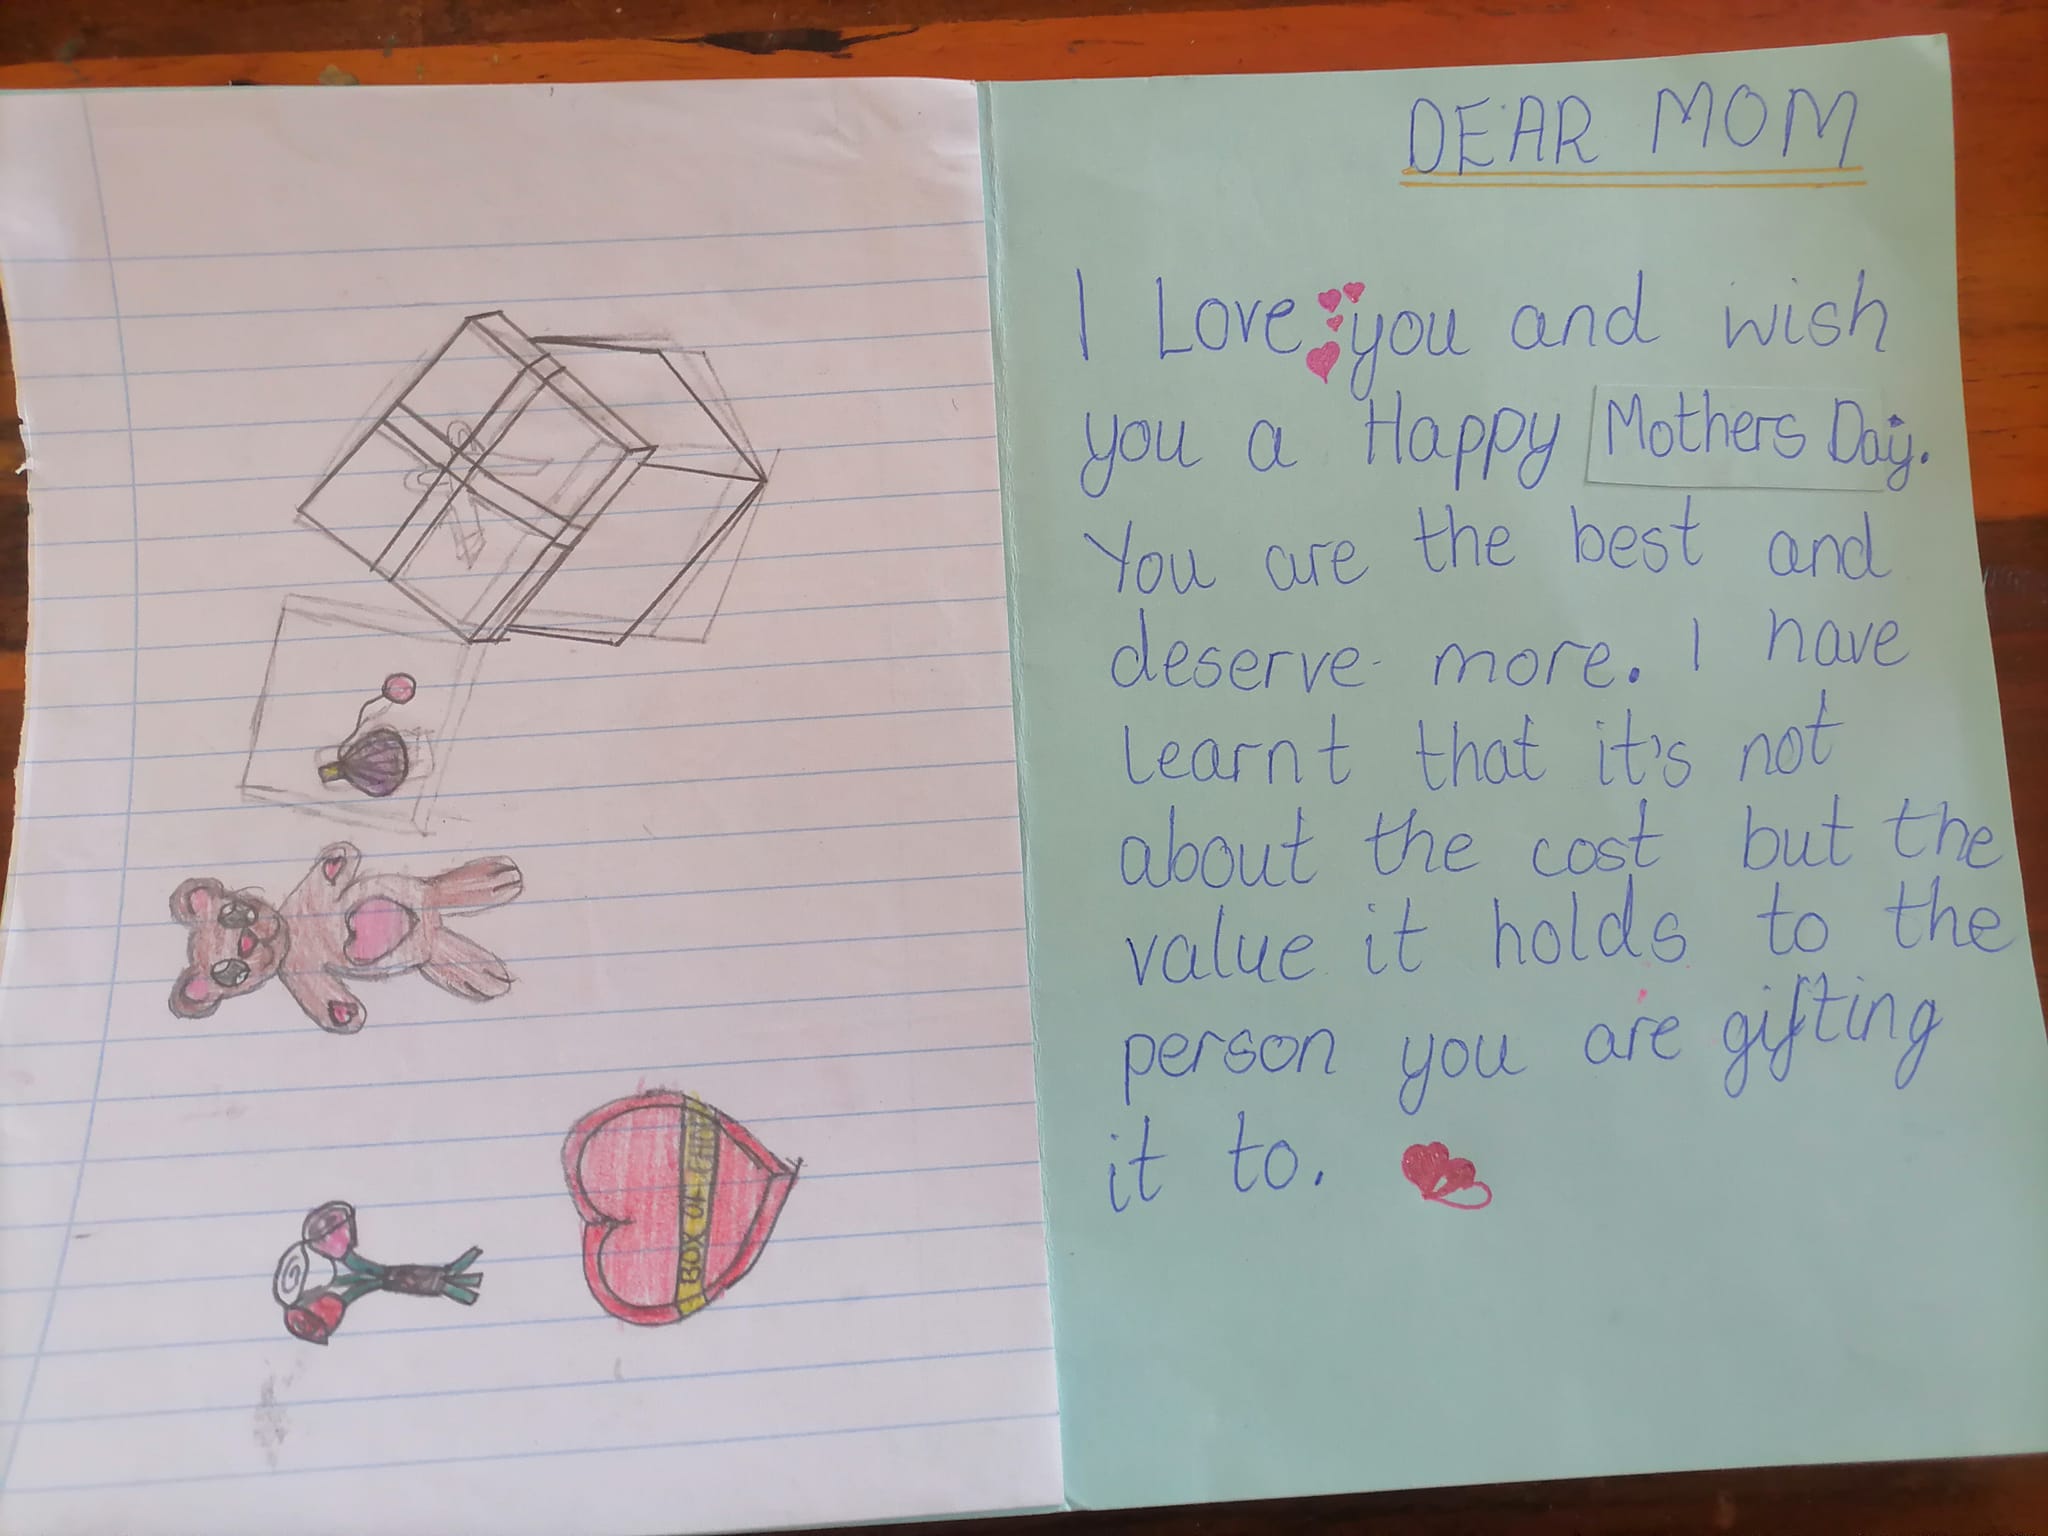 DEAR MOM
I Love you and wish
you a Happy Mothers Day.
You are the best and
deserve more. I have
learnt that it's not
about the cost but the
value it holds to the
person you are gifting
it to.
BOX OF